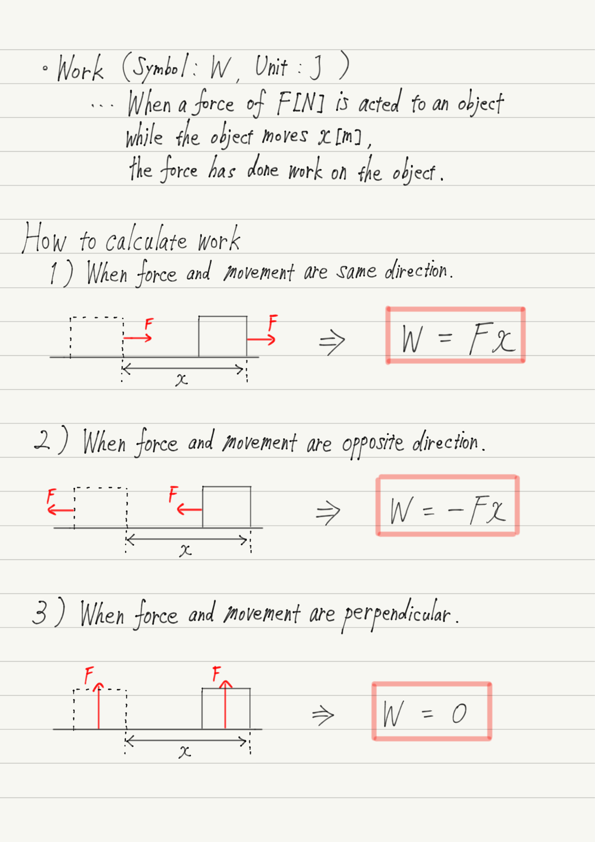 • Work (Symbol: W, Unit: J)
... When a force of F[N] is acted to an object
while the object moves x[m],
the force has done work on the object.
How to calculate work
1) When force and movement are same direction.
F F
⇒ W = Fx
x
2) When force and movement are opposite direction.
F F
⇒ W = -Fx
x
3) When force and movement are perpendicular.
F F
⇒ W = 0
x